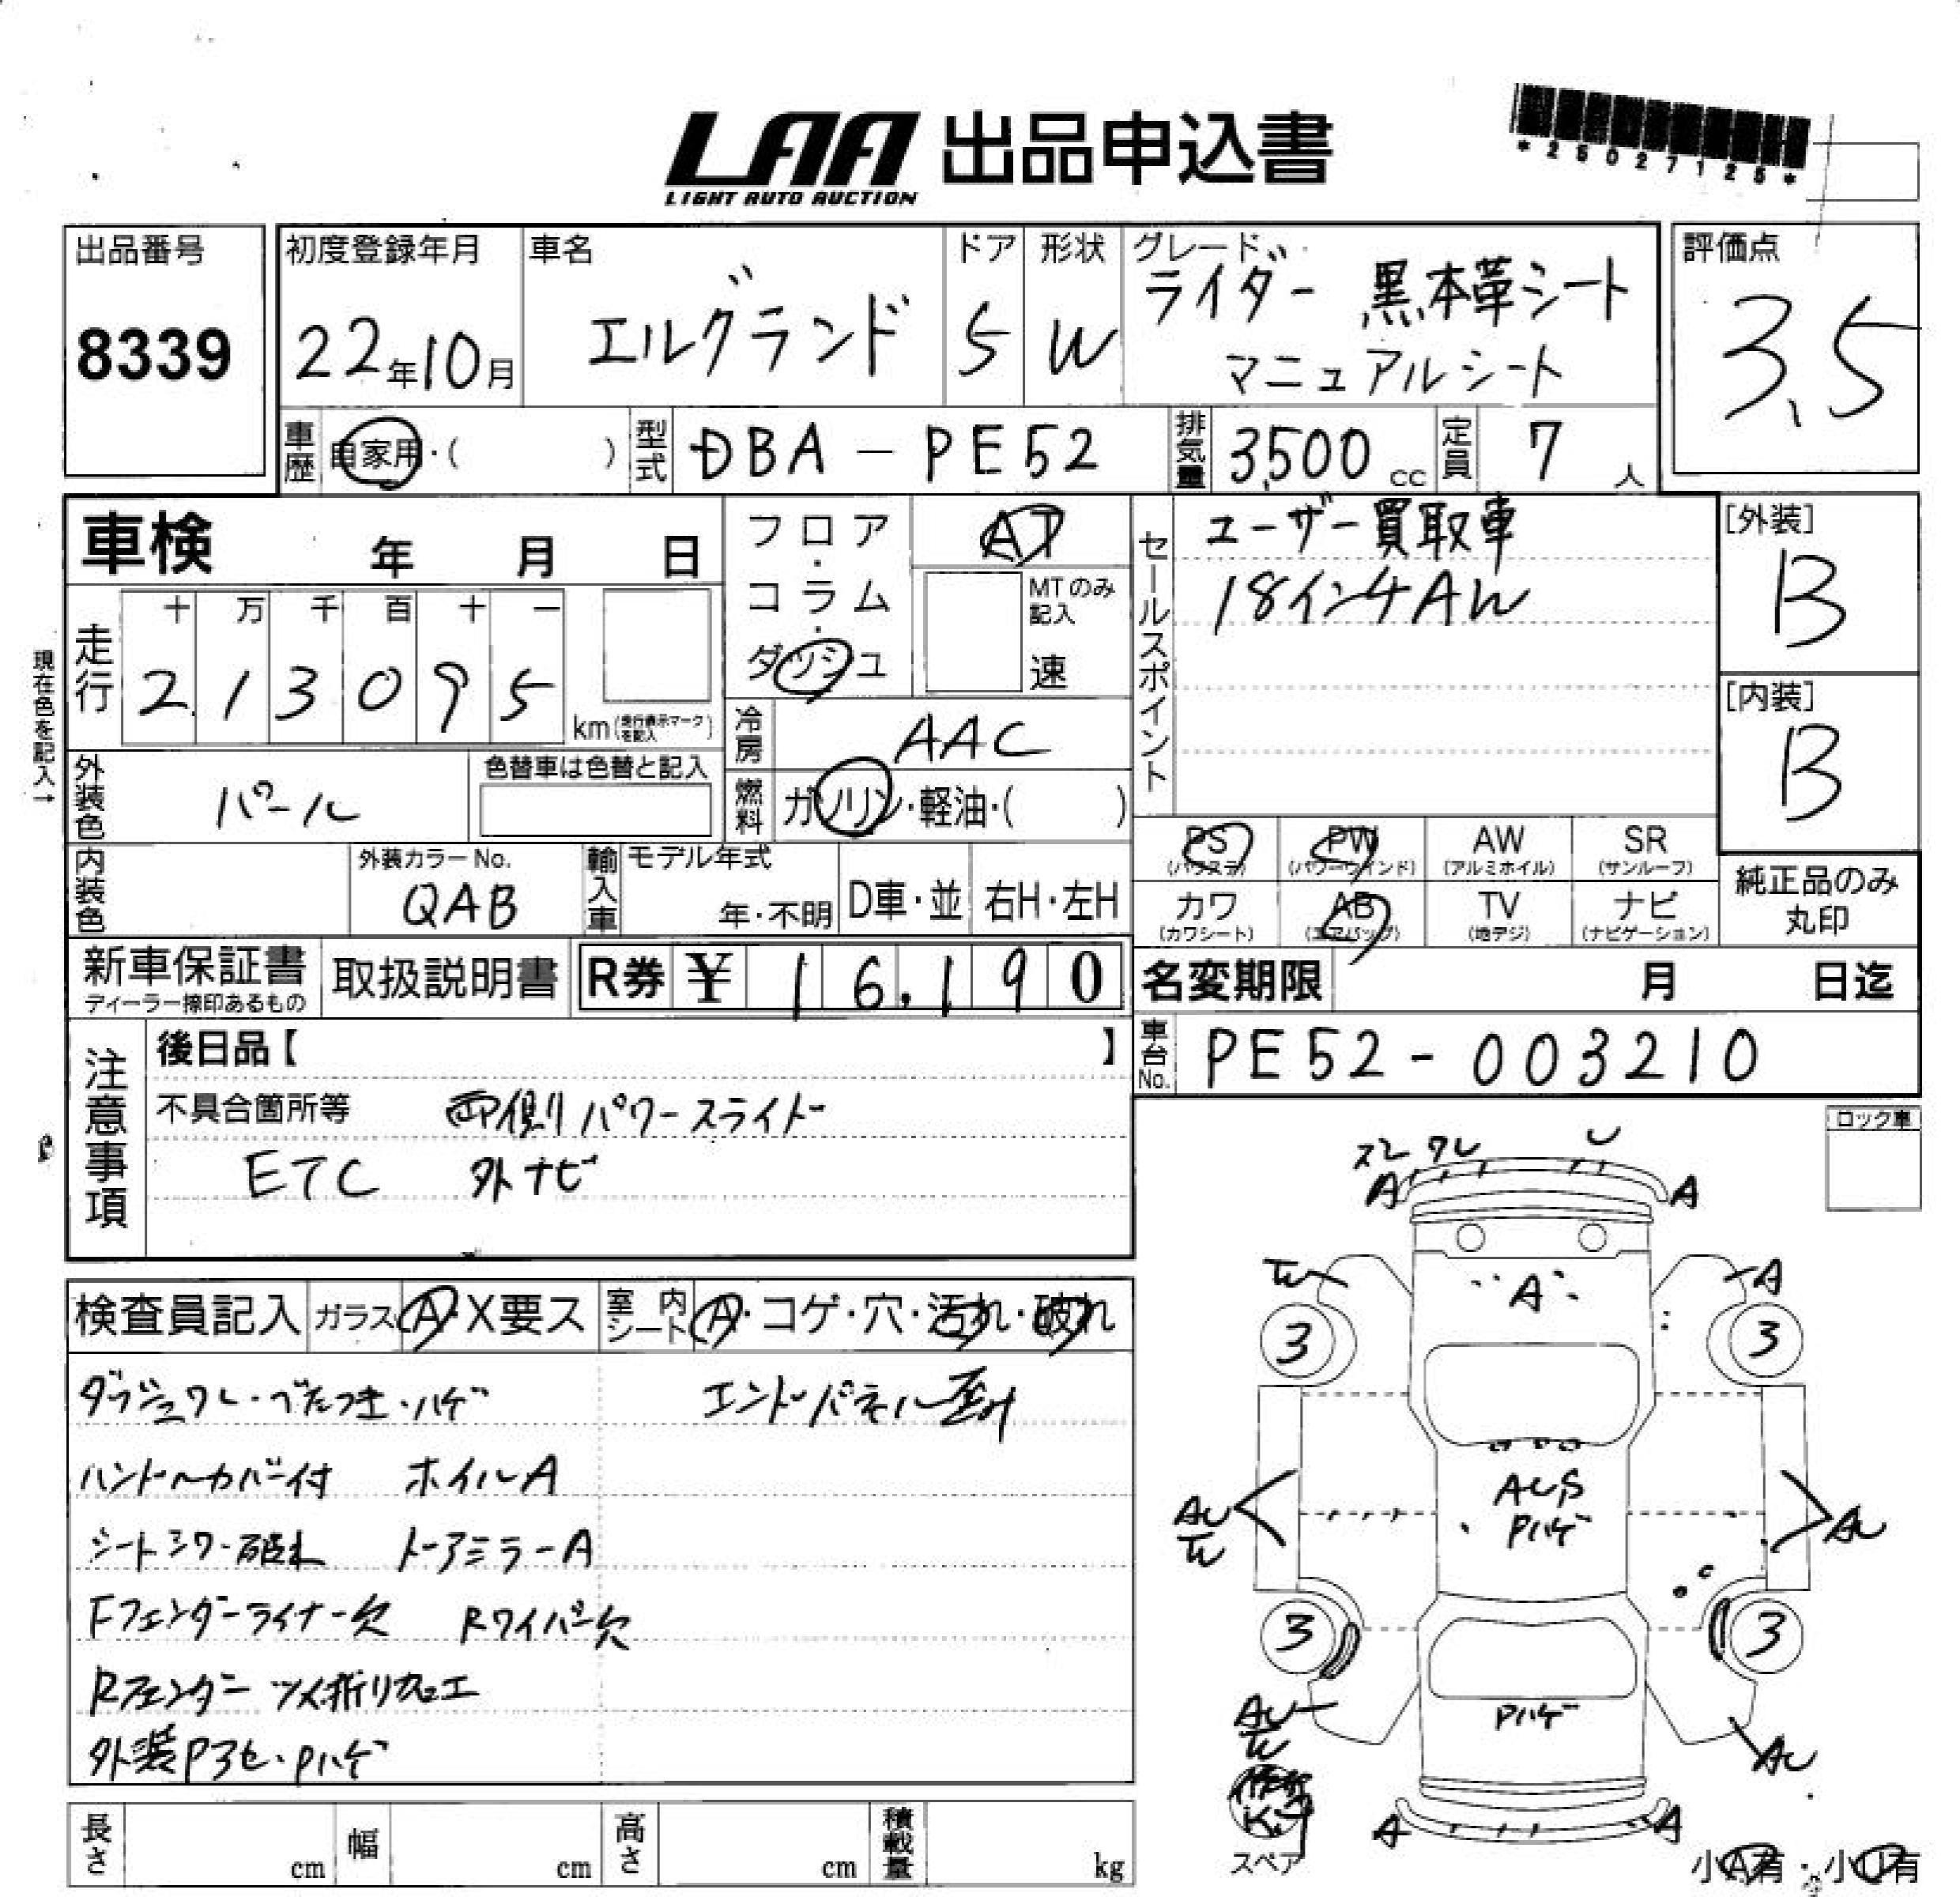 LAA 出品申込書
LIGHT AUTO AUCTION
*25027125*
出品番号
8339
初度登録年月
22年10月
車名
エルグランド
ドア
5
形状
W
グレード
ライダー 黒本革シート
マニュアルシート
評価点
3.5
車歴
自家用・( )
型式
DBA-PE52
排気量
3,500 cc
定員
7 人
車検 年 月 日
走行
十 万 千 百 十 一
2 1 3 0 9 5
km (走行表示マークを記入)
現在色を記入→
フロア・コラム・ダッシュ
AT
MTのみ記入
速
冷房
AAC
燃料
ガソリン・軽油・( )
外装色
パール
色替車は色替と記入
内装色
外装カラーNo.
QAB
輸入車
モデル年式
年・不明
D車・並
右H・左H
セールスポイント
ユーザー買取車
18インチAW
[外装]
B
[内装]
B
PS (パワステ)
PW (パワーウインド)
AW (アルミホイル)
SR (サンルーフ)
カワ (カワシート)
AB (エアバッグ)
TV (地デジ)
ナビ (ナビゲーション)
純正品のみ
丸印
新車保証書
ディーラー捺印あるもの
取扱説明書
R券 ¥ 16,190
名変期限 月 日迄
車台No.
PE52-003210
注意事項
後日品【 】
不具合箇所等 両側パワースライド
ETC 外ナビ
ロック車
検査員記入
ガラス A・X要ス
室内シート A・コゲ・穴・汚れ・破れ
ダッシュワレ・べたつき・ハゲ
エンドパネル歪み
ハンドルカバー付 ホイルA
シートシワ・破れ ドアミラーA
Fフェンダーライナー欠 Rワイパー欠
Rフェンダー ツメ折り加工
外装Pヨセ・Pハゲ
スレ ワレ U
A A
A
A
3 3
AUS
Pハゲ
AU
AU
3 3
Pハゲ
AU
AU
A A
スペア
小A有・小U有
長さ cm
幅 cm
高さ cm
積載量 kg